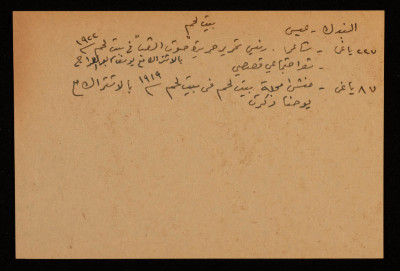 بيت لحم
البندك - عيسى
٢٢٧ يا غ - شاعر . رئيس تحرير جريدة صوت الشعب في بيت لحم ١٩٢٢
بالاشتراك مع يوسف
- شعر اجتماعي قصصي
٨٧ يا غ - منشئ مجلة بيت لحم في بيت لحم ١٩١٩ بالاشتراك مع
يوحنا دكرت